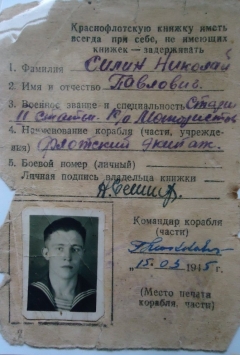 Краснофлотскую книжку иметь
всегда при себе, не имеющих
книжек — задерживать
1. Фамилия Силин Николай
2. Имя и отчество Павлович.
3. Военное звание и специальность Старш
II статьи.
4. Наименование корабля (части, учрежде-
ния) Флотский экипаж.
5. Боевой номер (личный)
Личная подпись владельца книжки
Командир корабля
(части)
„15.03 1945 г.
(Место печати
корабля, части)
2